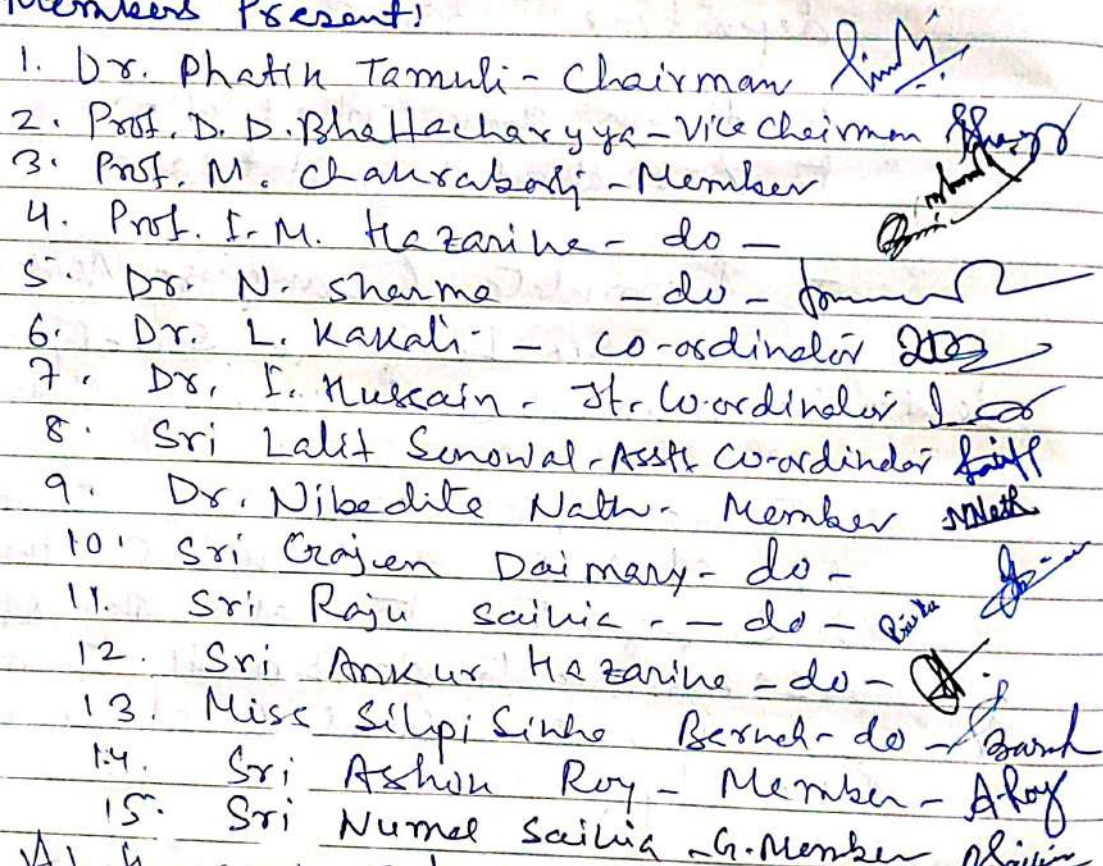 Members Present:
1. Dr. Phatik Tamuli - Chairman
2. Prof. D. D. Bhattacharyya - Vice Chairman
3. Prof. M. Chakrabarty - Member
4. Prof. I. M. Hazarika - do -
5. Dr. N. Sharma - do -
6. Dr. L. Kakati - Co-ordinator
7. Dr. I. Hussain - Jt. Co-ordinator
8. Sri Lalit Sonowal - Asstt Co-ordinator
9. Dr. Nibedita Nath - Member NNath
10. Sri Gajen Daimary - do -
11. Sri Raju Saikia - - do -
12. Sri Ankur Hazarika - do -
13. Miss Silipi Sinha Baruah - do - Baruah
14. Sri Ashok Roy - Member - A. Roy
15. Sri Numal Saikia - G. Member